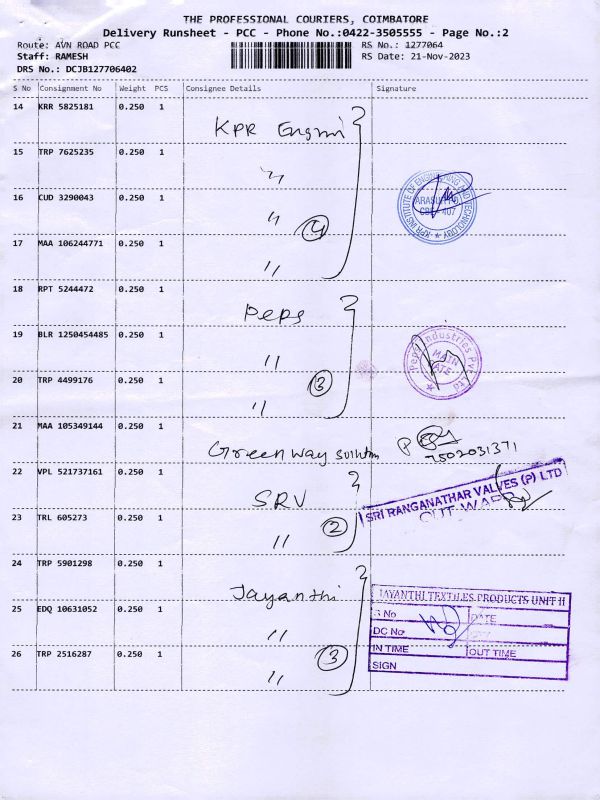 THE PROFESSIONAL COURIERS, COIMBATORE
Delivery Runsheet - PCC - Phone No.:0422-3505555 - Page No.:2
Route: AVN ROAD PCC RS No.: 1277064
Staff: RAMESH RS Date: 21-Nov-2023
DRS No.: DCJB127706402
S No Consignment No Weight PCS Consignee Details Signature
14 KRR 5825181 0.250 1 KPR Engin
KPR INSTITUTE OF ENGINEERING AND TECHNOLOGY
ARASUR
407
15 TRP 7625235 0.250 1 "
16 CUD 3290043 0.250 1 " 4
17 MAA 106244771 0.250 1 "
18 RPT 5244472 0.250 1 Peps
Peps Industries Pvt Ltd
MAIN
GATE
19 BLR 1250454485 0.250 1 "
20 TRP 4499176 0.250 1 " 3
21 MAA 105349144 0.250 1 Greenway solution
7502031371
22 VPL 521737161 0.250 1 SRV
SRI RANGANATHAR VALVES (P) LTD
OUT WARD
23 TRL 605273 0.250 1 " 2
24 TRP 5901298 0.250 1 Jayanthi
JAYANTHI TEXTILES PRODUCTS UNIT-II
S No DATE
DC No
IN TIME OUT TIME
SIGN
25 EDQ 10631052 0.250 1 "
26 TRP 2516287 0.250 1 " 3